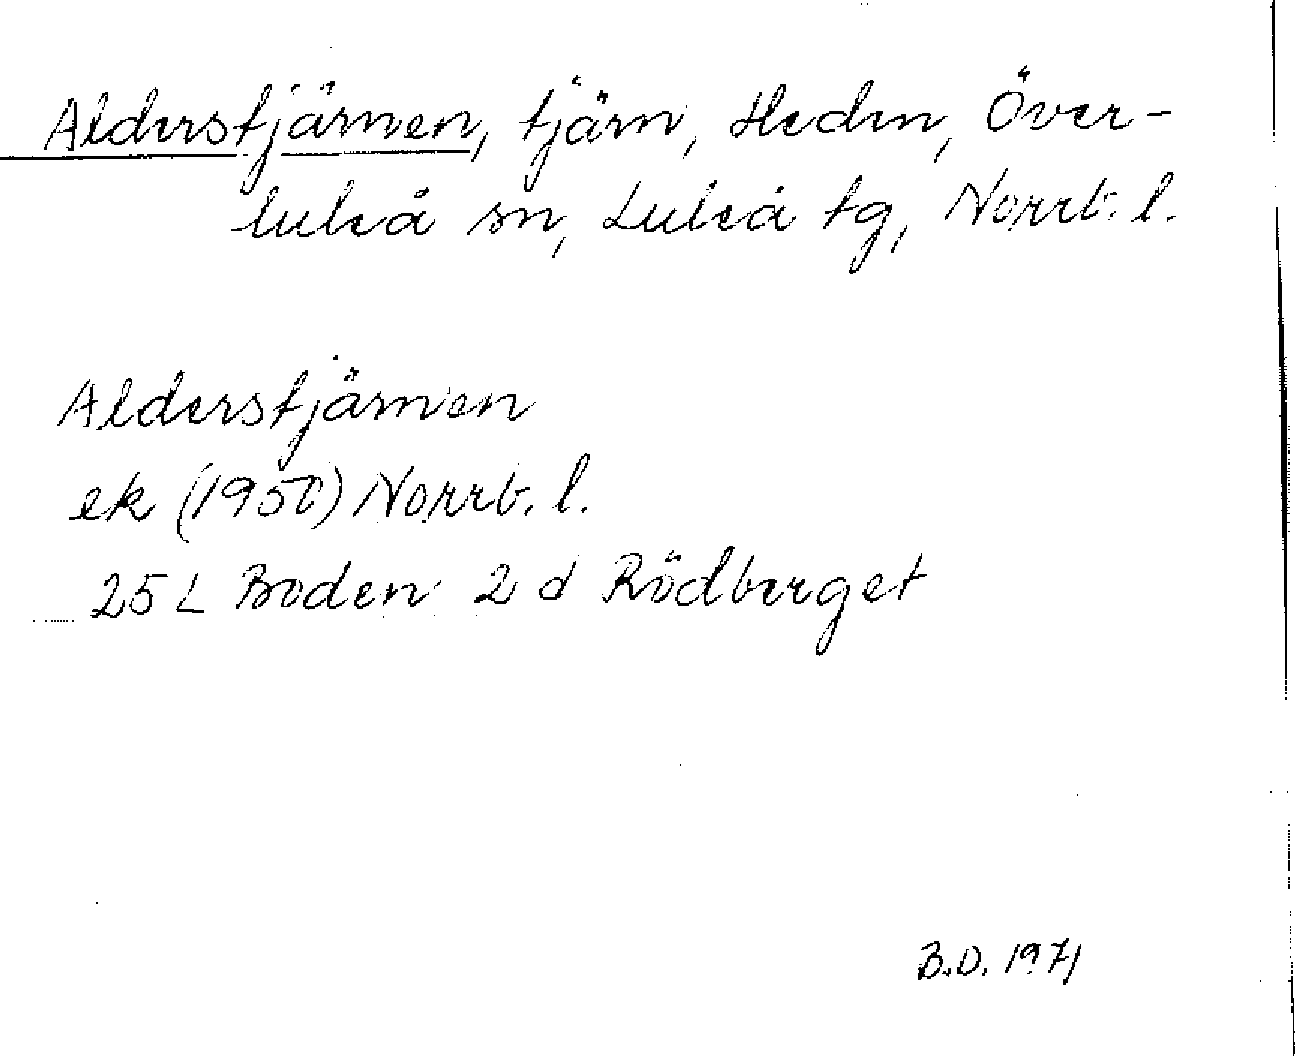 Alderstjärnen, tjärn, Heden, Över-
luleå sn, Luleå tg, Norrb. l.
Alderstjärnen
ek (1950) Norrb. l.
25 L Boden 2 d Rödberget
B.D. 1971